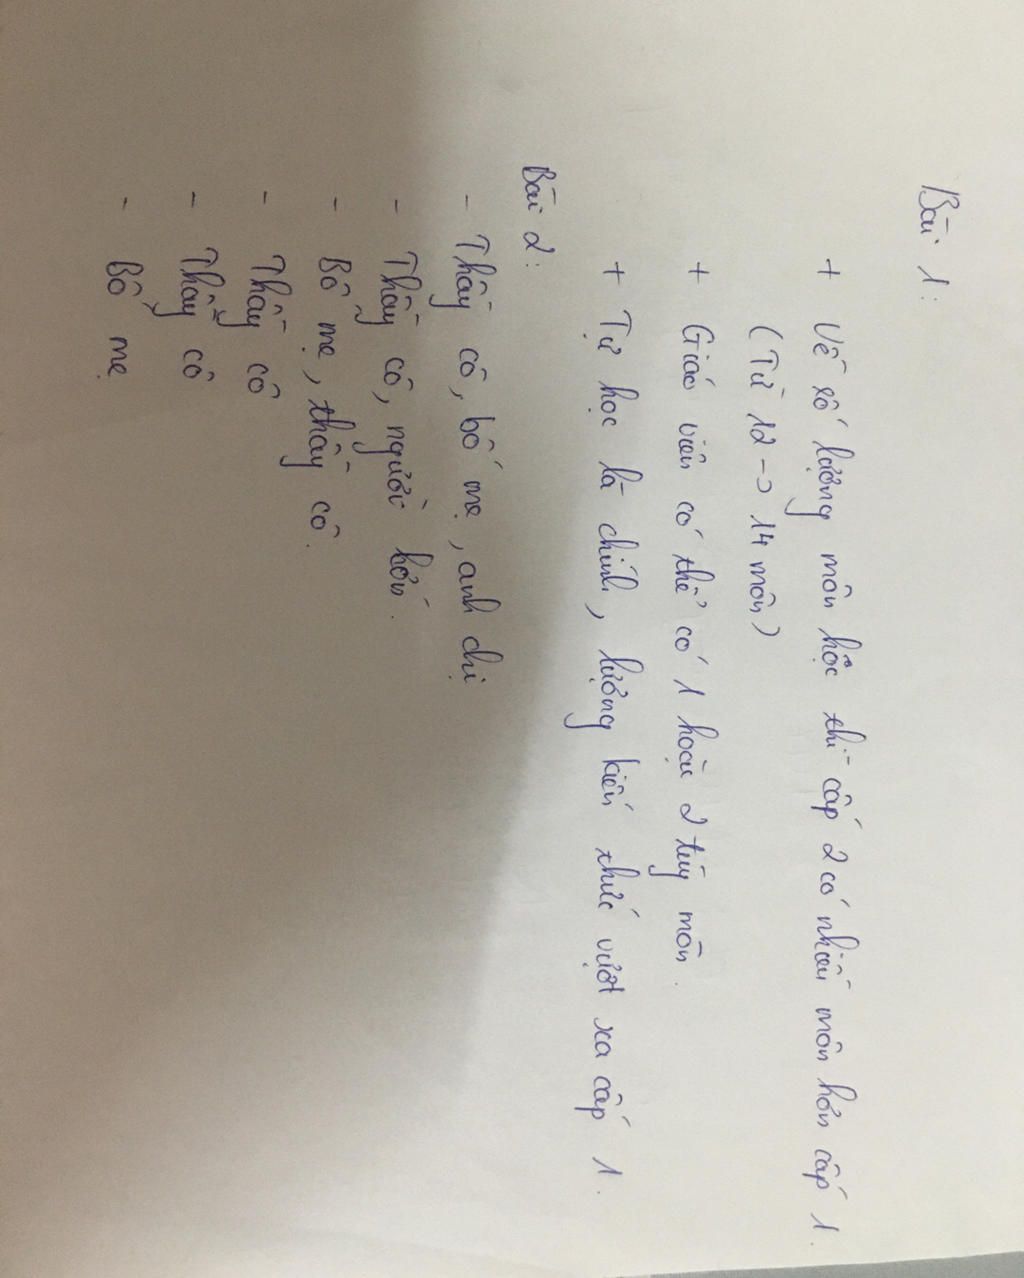 Bài 1:
+ Về số lượng môn học thì cấp 2 có nhiều môn hơn cấp 1.
(Từ 12 -> 14 môn)
+ Giáo viên có thể có 1 hoặc 2 tùy môn.
+ Tự học là chính, lượng kiến thức vượt xa cấp 1.
Bài 2:
- Thầy cô, bố mẹ, anh chị
- Thầy cô, người lớn.
- Bố mẹ, thầy cô.
- Thầy cô
- Thầy cô
- Bố mẹ